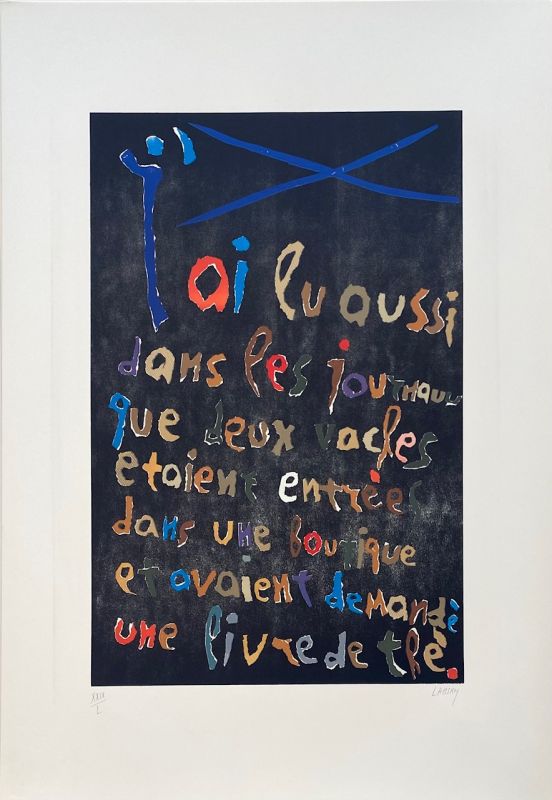 j'ai lu aussi
dans les journaux
que deux vaches
etaient entrées
dans une boutique
et avaient demandè
une livre de thè.
XXIX
L
LANSKOY